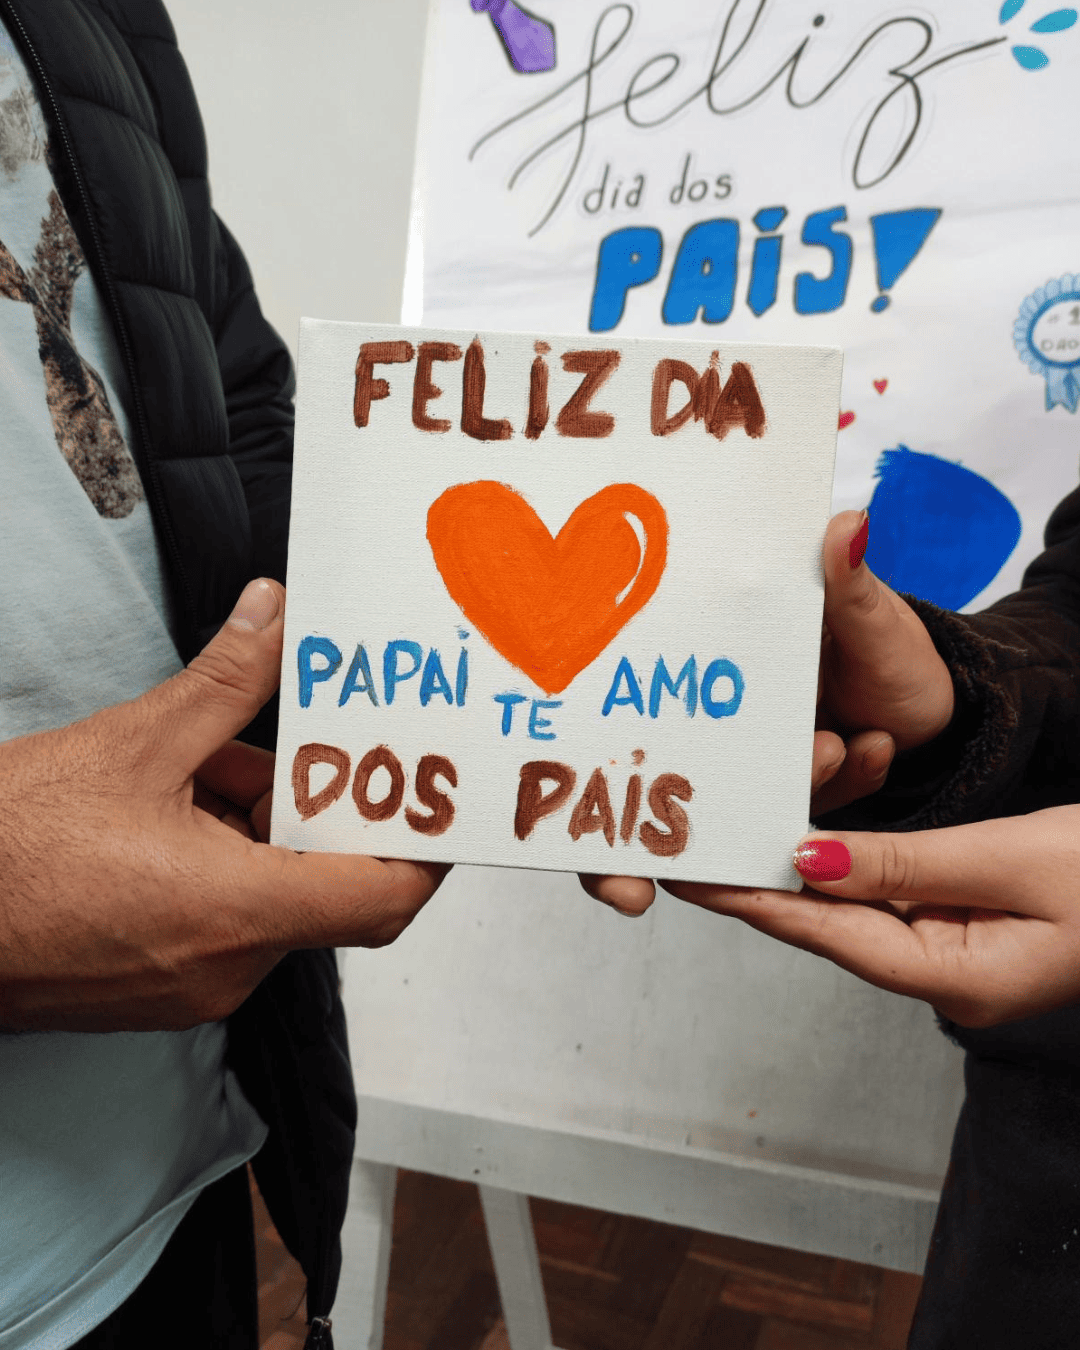 feliz
dia dos
PAÍS!
# 1
FELIZ DIA
PAPAI TE AMO
DOS PAIS